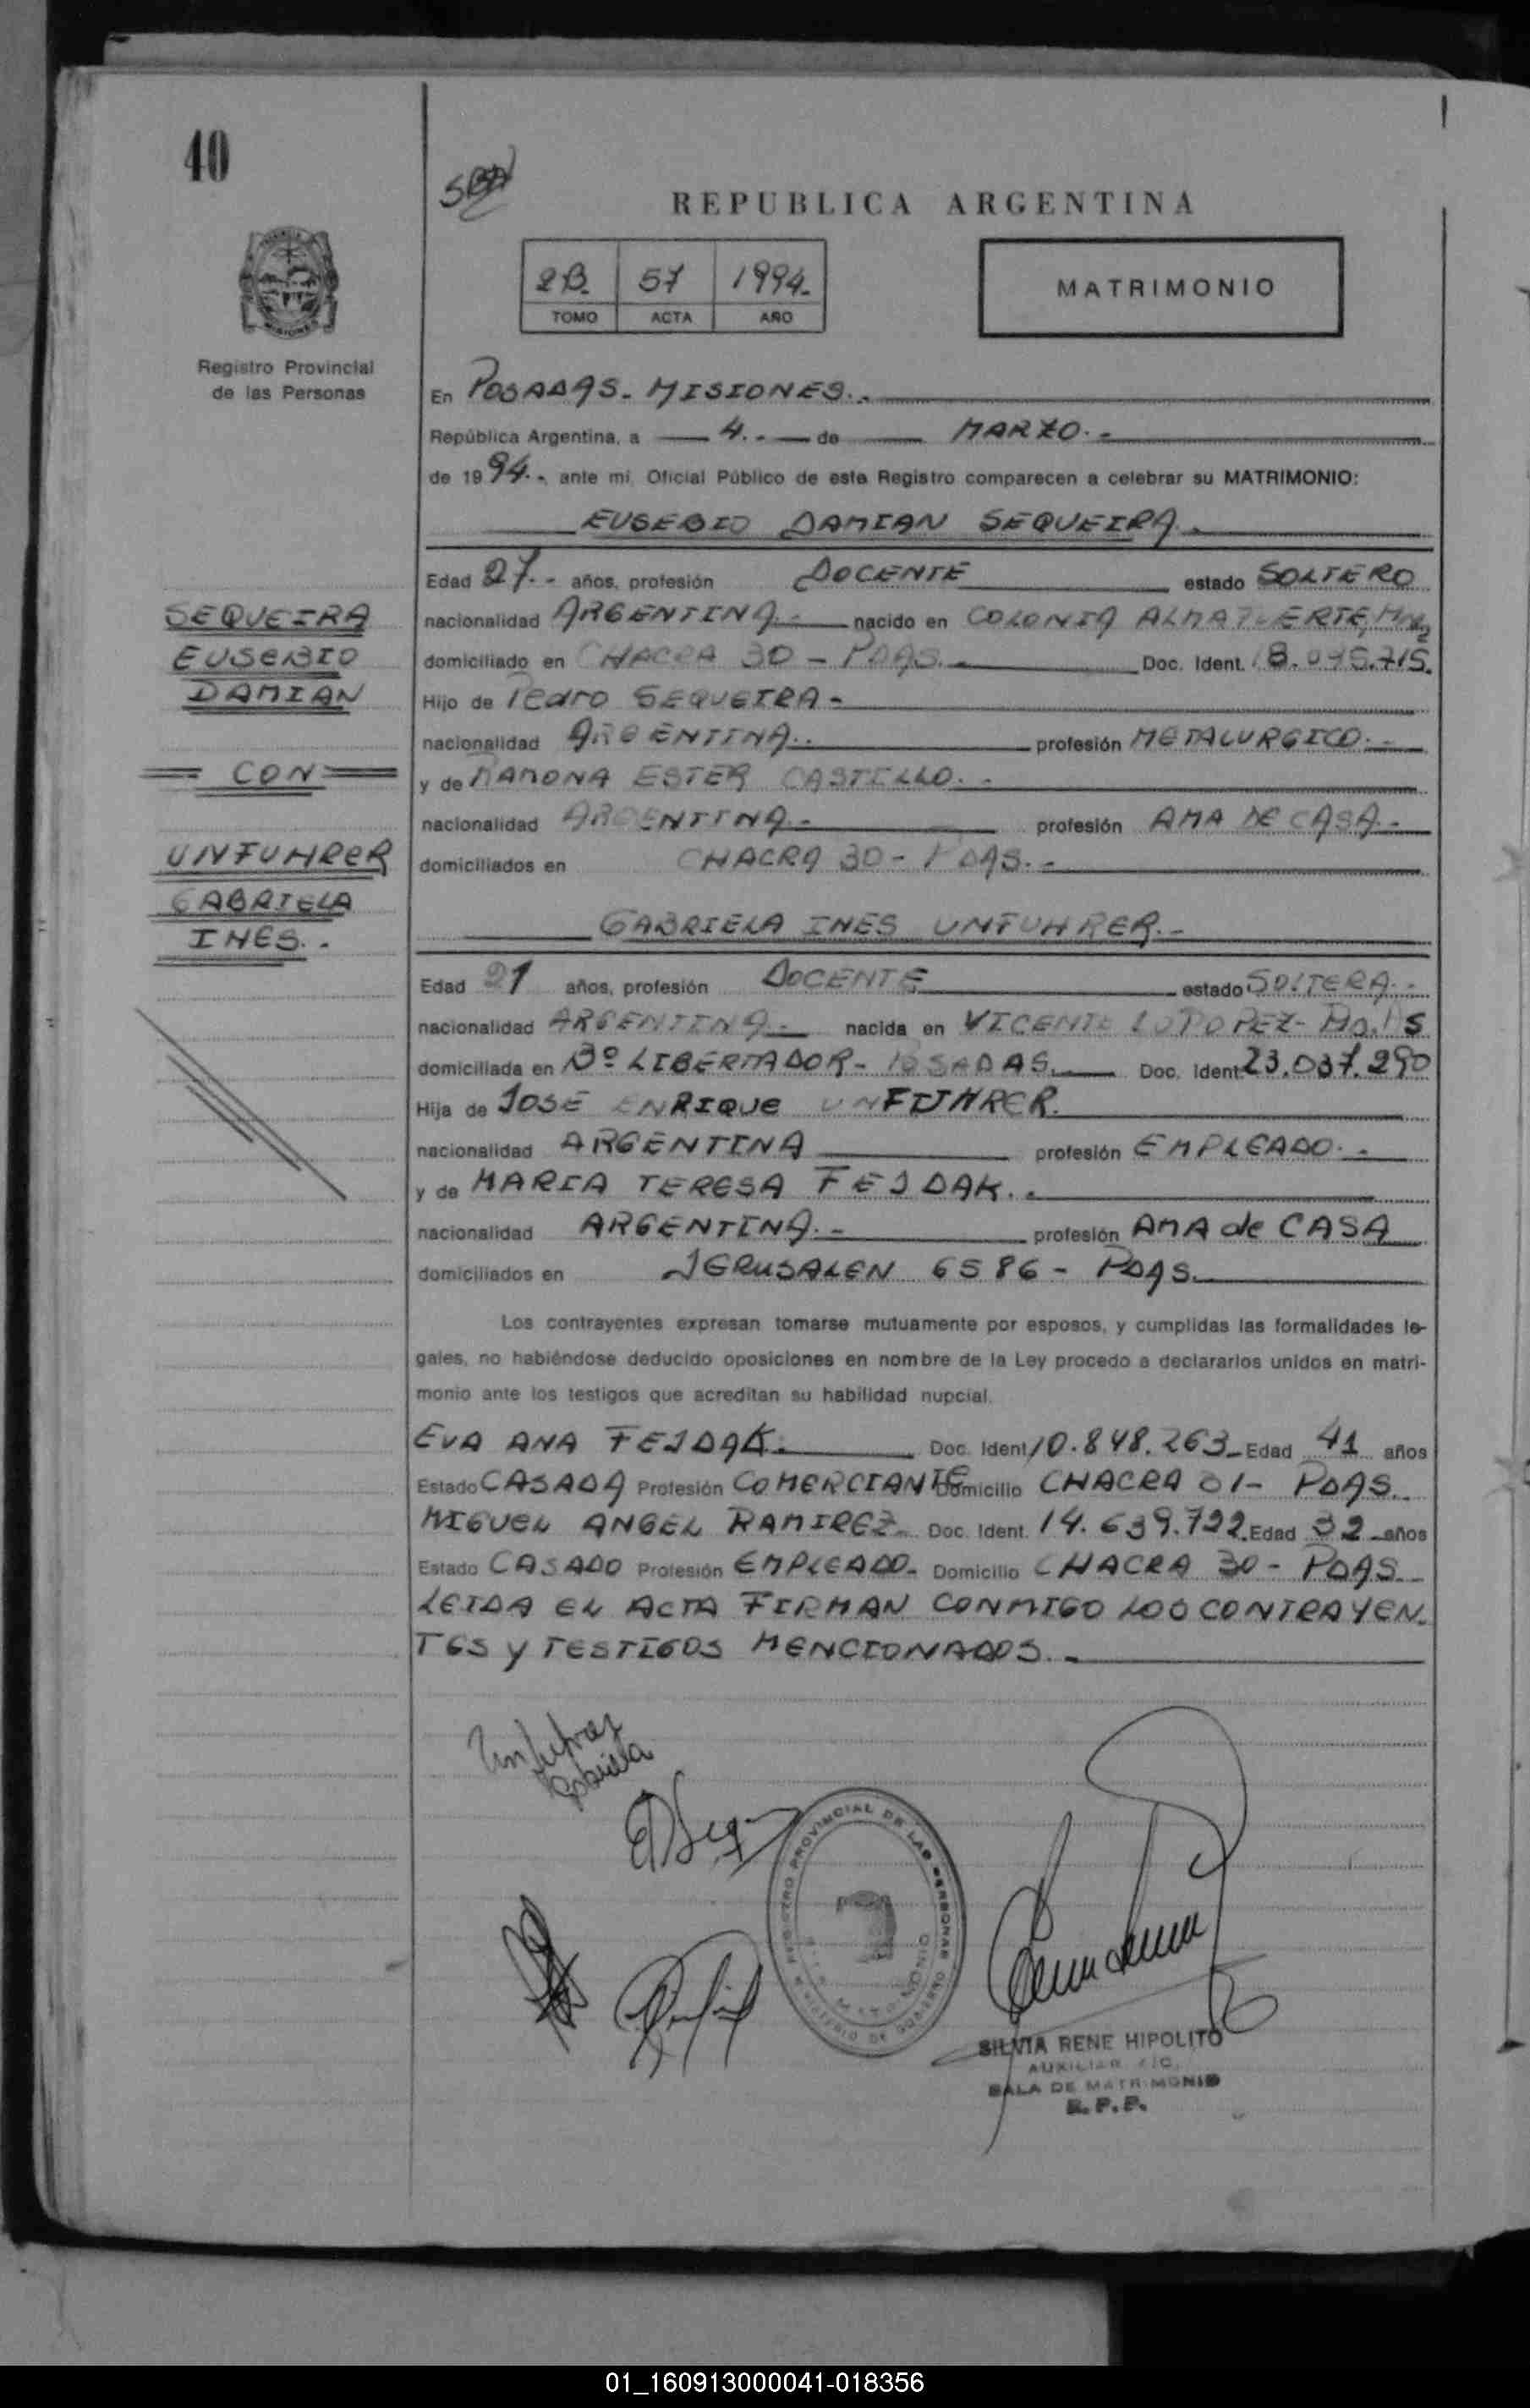 40
REPUBLICA ARGENTINA
2B. 57 1994.-
TOMO ACTA AÑO
MATRIMONIO
Registro Provincial
de las Personas
En POSADAS - MISIONES.-
República Argentina, a 4.- de MARZO.-
de 1994.-, ante mí, Oficial Público de este Registro comparecen a celebrar su MATRIMONIO:
EUSEBIO DAMIAN SEQUEIRA.-
Edad 27.- años, profesión DOCENTE estado SOLTERO
nacionalidad ARGENTINA.- nacido en COLONIA ALMAFUERTE, Mnes
domiciliado en CHACRA 30 - PDAS.- Doc. Ident. 18.095.715.
Hijo de Pedro SEQUEIRA -
nacionalidad ARGENTINA.- profesión METALURGICO.-
y de RAMONA ESTER CASTILLO.-
nacionalidad ARGENTINA.- profesión AMA DE CASA.-
domiciliados en CHACRA 30 - PDAS.-
SEQUEIRA
EUSEBIO
DAMIAN
CON
UNFUHRER
GABRIELA
INES.-
GABRIELA INES UNFUHRER.-
Edad 21 años, profesión DOCENTE estado SOLTERA.-
nacionalidad ARGENTINA.- nacida en VICENTE LOPOPEZ-
domiciliada en Bº LIBERTADOR - POSADAS. Doc. Ident. 23.037.290
Hija de JOSE ENRIQUE UNFUHRER.
nacionalidad ARGENTINA profesión EMPLEADO.-
y de MARIA TERESA FEJDAK.-
nacionalidad ARGENTINA.- profesión AMA de CASA
domiciliados en JERUSALEN 6586 - PDAS.
Los contrayentes expresan tomarse mutuamente por esposos, y cumplidas las formalidades le-
gales, no habiéndose deducido oposiciones en nombre de la Ley procedo a declararlos unidos en matri-
monio ante los testigos que acreditan su habilidad nupcial.
EVA ANA FEJDAK. Doc. Ident. 10.848.263 - Edad 41 años
Estado CASADA Profesión COMERCIANTE Domicilio CHACRA 01 - PDAS.
MIGUEL ANGEL RAMIREZ Doc. Ident. 14.639.722. Edad 32 años
Estado CASADO Profesión EMPLEADO. Domicilio CHACRA 30 - PDAS
LEIDA EL ACTA FIRMAN CONMIGO LOS CONTRAYEN.
TES y TESTIGOS MENCIONADOS.-
Unfuhrer
Gabriela
REGISTRO PROVINCIAL DE LAS PERSONAS
MINISTERIO DE GOBIERNO
SILVIA RENE HIPOLITO
AUXILIAR
SALA DE MATRIMONIO
R.P.P.
01_160913000041-018356